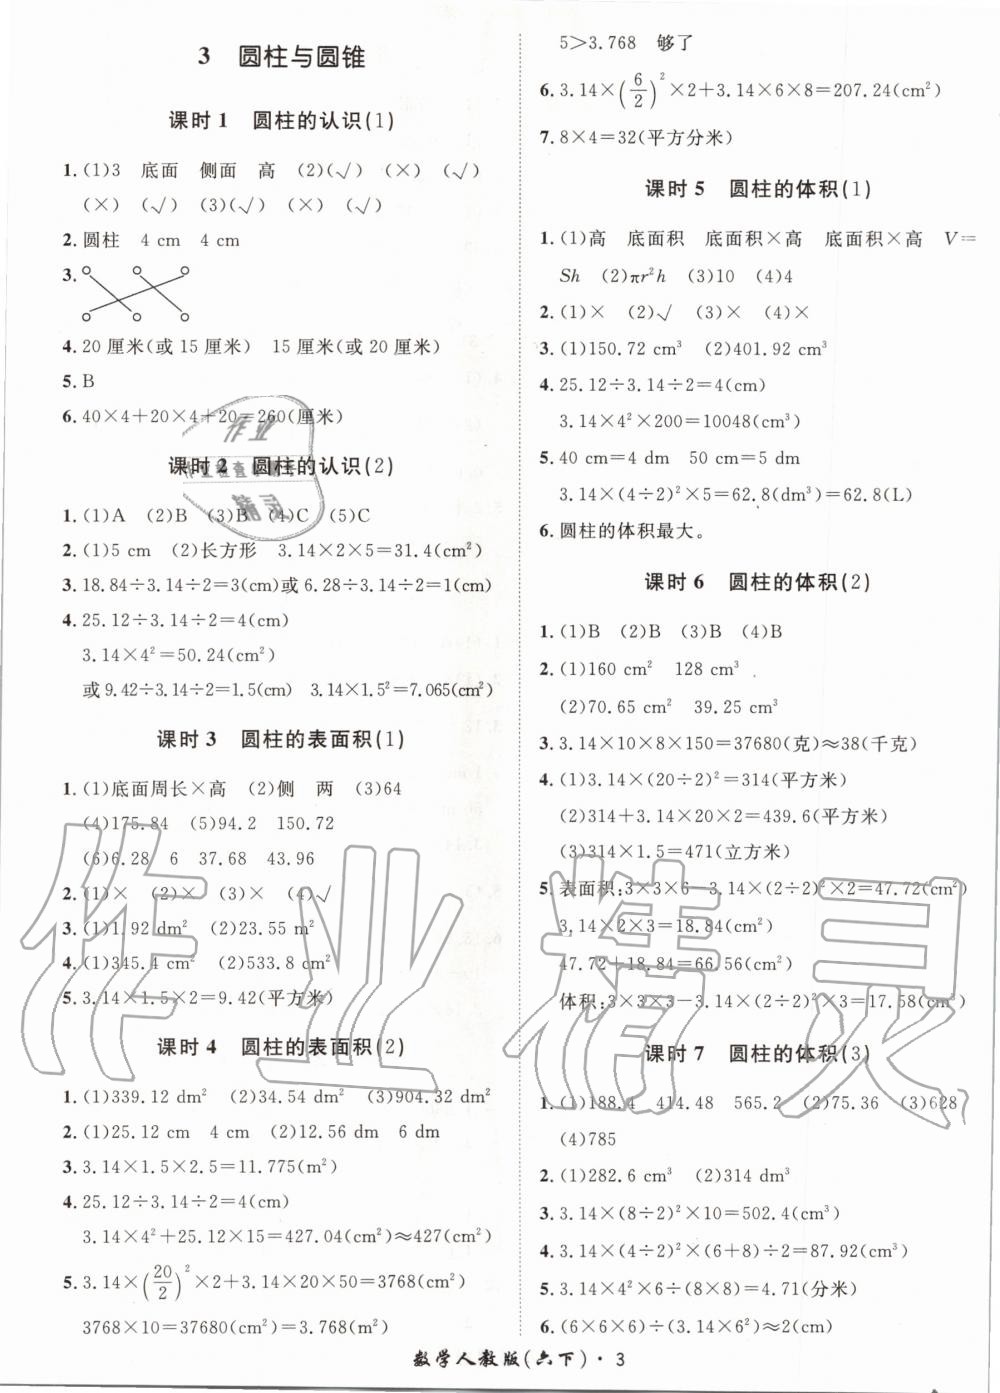 3 圆柱与圆锥
课时1 圆柱的认识(1)
1.(1)3 底面 侧面 高 (2)(√) (×) (√)
(×) (√) (3)(√) (×) (√)
2.圆柱 4 cm 4 cm
3.
4.20厘米(或15厘米) 15厘米(或20厘米)
5.B
6.40×4+20×4+20=260(厘米)
课时2 圆柱的认识(2)
1.(1)A (2)B (3)B (4)C (5)C
2.(1)5 cm (2)长方形 3.14×2×5=31.4(cm²)
3.18.84÷3.14÷2=3(cm)或6.28÷3.14÷2=1(cm)
4.25.12÷3.14÷2=4(cm)
3.14×4²=50.24(cm²)
或9.42÷3.14÷2=1.5(cm) 3.14×1.5²=7.065(cm²)
课时3 圆柱的表面积(1)
1.(1)底面周长×高 (2)侧 两 (3)64
(4)175.84 (5)94.2 150.72
(6)6.28 6 37.68 43.96
2.(1)× (2)× (3)× (4)√
3.(1)1.92 dm² (2)23.55 m²
4.(1)345.4 cm² (2)533.8 cm²
5.3.14×1.5×2=9.42(平方米)
课时4 圆柱的表面积(2)
1.(1)339.12 dm² (2)34.54 dm² (3)904.32 dm²
2.(1)25.12 cm 4 cm (2)12.56 dm 6 dm
3.3.14×1.5×2.5=11.775(m²)
4.25.12÷3.14÷2=4(cm)
3.14×4²+25.12×15=427.04(cm²)≈427(cm²)
5.3.14×(20/2)²×2+3.14×20×50=3768(cm²)
3768×10=37680(cm²)=3.768(m²)
5>3.768 够了
6.3.14×(6/2)²×2+3.14×6×8=207.24(cm²)
7.8×4=32(平方分米)
课时5 圆柱的体积(1)
1.(1)高 底面积 底面积×高 底面积×高 V=
Sh (2)πr²h (3)10 (4)4
2.(1)× (2)√ (3)× (4)×
3.(1)150.72 cm³ (2)401.92 cm³
4.25.12÷3.14÷2=4(cm)
3.14×4²×200=10048(cm³)
5.40 cm=4 dm 50 cm=5 dm
3.14×(4÷2)²×5=62.8(dm³)=62.8(L)
6.圆柱的体积最大。
课时6 圆柱的体积(2)
1.(1)B (2)B (3)B (4)B
2.(1)160 cm² 128 cm³
(2)70.65 cm² 39.25 cm³
3.3.14×10×8×150=37680(克)≈38(千克)
4.(1)3.14×(20÷2)²=314(平方米)
(2)314+3.14×20×2=439.6(平方米)
(3)314×1.5=471(立方米)
5.表面积:3×3×6-3.14×(2÷2)²×2=47.72(cm²)
3.14×2×3=18.84(cm²)
47.72+18.84=66.56(cm²)
体积:3×3×3-3.14×(2÷2)²×3=17.58(cm³)
课时7 圆柱的体积(3)
1.(1)188.4 414.48 565.2 (2)75.36 (3)628
(4)785
2.(1)282.6 cm³ (2)314 dm³
3.3.14×(8÷2)²×10=502.4(cm³)
4.3.14×(4÷2)²×(6+8)÷2=87.92(cm³)
5.3.14×4²×6÷(8×8)=4.71(分米)
6.(6×6×6)÷(3.14×6²)≈2(cm)
数学人教版(六下)·3
作业精灵